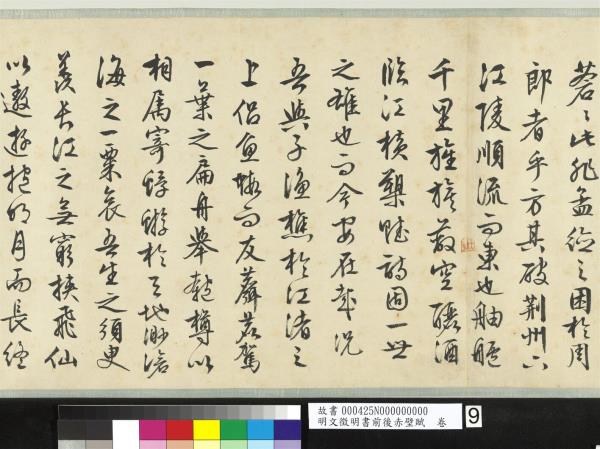 蒼〻此非孟德之困於周
郎者乎方其破荆州下
江陵順流而東也舳艫
千里旌旗蔽空釃酒
臨江橫槊賦詩固一世
之雄也而今安在哉況
吾與子漁樵於江渚之
上侶魚蝦而友麋鹿駕
一葉之扁舟舉匏樽以
相屬寄蜉蝣於天地渺滄
海之一粟哀吾生之須臾
羨長江之無窮挾飛仙
以遨遊抱明月而長終
故書 000425N000000000
明文徵明書前後赤壁賦 卷
9